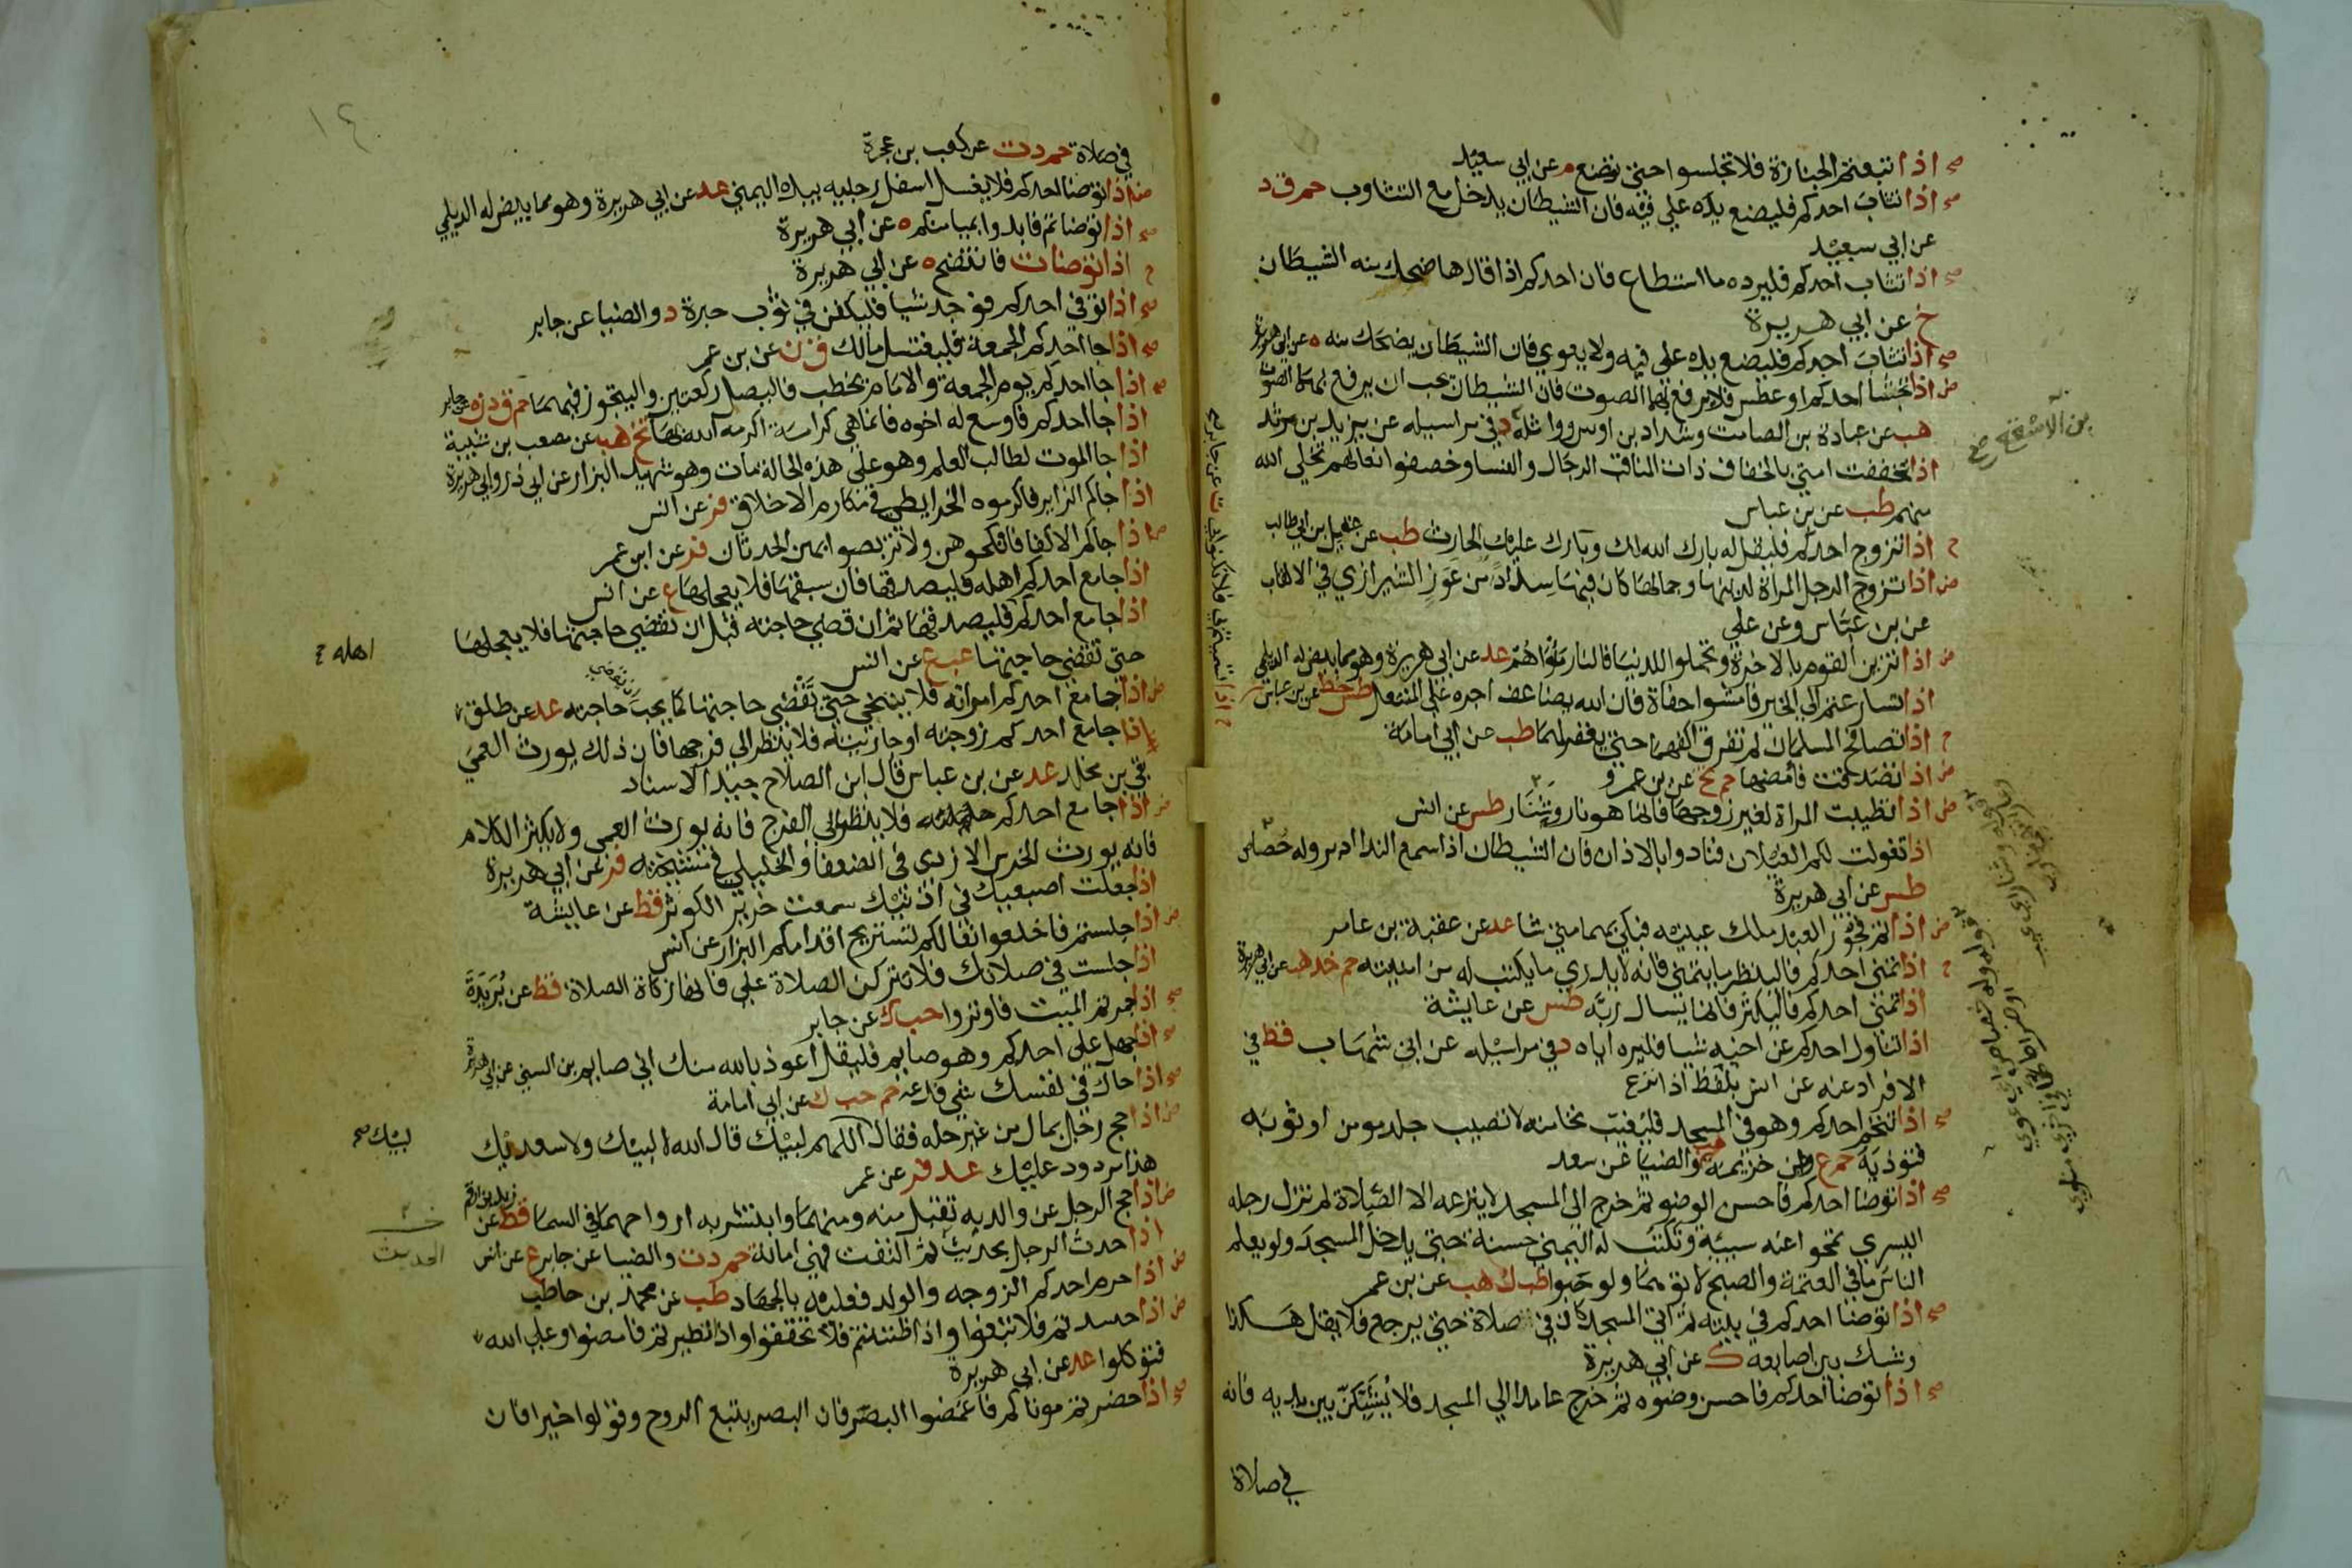 صح اذا اتبعتم الجنازة فلا تجلسوا حتى توضع م عن ابي سعيد
صح اذا تثاب احدكم فليضع يده على فيه فان الشيطان يدخل مع التثاوب حم ق د
عن ابي سعيد
صح اذا تثاب احدكم فليرده ما استطاع فان احدكم اذا قال ها ضحك منه الشيطان
خ عن ابي هريرة
صح اذا تثاب احدكم فليضع يده على فيه ولا يعوي فان الشيطان يضحك منه ه عن ابي هريرة
ض اذا تجشا احدكم او عطس فلا يرفع بهما الصوت فان الشيطان يحب ان يرفع بهما الصوت
هب عن عبادة بن الصامت وشداد بن اوس وواثلة د في مراسيله عن يزيد بن مرثد
اذا تخففت امتي بالخفاف ذات المناقب الرجال والنسا وخصفوا نعالهم تخلى الله
منهم طب عن بن عباس
ح اذا تزوج احدكم فليقل له بارك الله لك وبارك عليك الحارث طب عن عقيل بن ابي طالب
ض اذا تزوج الرجل المراة لدينها وجمالها كان فيها سداد من عوز الشيرازي في الالقاب
عن بن عباس وعن علي
ض اذا تزين القوم بالاخرة وتجملوا للدنيا فالنار ماواهم عد عن ابي هريرة وهو مما بيض له الديلمي
اذا تسارعتم الى الخير فامشوا حفاة فان الله يضاعف اجره على المنتعل طس خط عن بن عباس
ح اذا تصافح المسلمان لم تفرق اكفهما حتى يغفر لهما طب عن ابي امامة
ض اذا تصدقت فامضها حم تخ عن بن عمرو
ض اذا تطيبت المراة لغير زوجها فانما هو نار وشنار طس عن انس
اذا تغولت لكم الغيلان فنادوا بالاذان فان الشيطان اذا سمع الندا ادبر وله حصاص
طس عن ابي هريرة
ض اذا تم فجور العبد ملك عينيه فبكى بهما متى شا عد عن عقبة بن عامر
ح اذا تمنى احدكم فلينظر ما يتمنى فانه لا يدري ما يكتب له من امنيته حم خد هب عن ابي هريرة
اذا تمنى احدكم فاليكثر فانما يسال ربه طس عن عايشة
اذا تناول احدكم عن اخيه شيا فليره اياه د في مراسيله عن ابن شهاب قط في
الافراد عنه عن انس بلفظ اذا نزع
صح اذا تنخم احدكم وهو في المسجد فليغيب نخامته لا تصيب جلد مومن او ثوبه
فتوذيه حم ع وبن خزيمة هب والضيا عن سعد
صح اذا توضا احدكم فاحسن الوضو ثم خرج الى المسجد لا ينزعه الا الصلاة لم تزل رجله
اليسرى تمحوا عنه سيية وتكتب له اليمنى حسنة حتى يدخل المسجد ولو يعلم
الناس ما في العتمة والصبح لاتوهما ولو حبوا طب ك هب عن بن عمر
صح اذا توضا احدكم في بيته ثم اتى المسجد كان في صلاة حتى يرجع فلا يقل هكذا
وشبك بين اصابعه ك عن ابي هريرة
صح اذا توضا احدكم فاحسن وضوه ثم خرج عامدا الى المسجد فلا يشبكن بين يديه فانه
في صلاة
بن الاسقع صح
في صلاة حم د ت عن كعب بن عجرة
ض اذا توضا احدكم فلا يغسل اسفل رجليه بيده اليمنى عد عن ابي هريرة وهو مما بيض له الديلمي
صح اذا توضاتم فابدوا بميامنكم ه عن ابي هريرة
ح اذا توضات فانتضح ه عن ابي هريرة
صح اذا توفي احدكم فوجد شيا فليكفن في ثوب حبرة د والضيا عن جابر
صح اذا جا احدكم الجمعة فليغتسل مالك ق ن عن بن عمر
صح اذا جا احدكم يوم الجمعة والامام يخطب فاليصل ركعتين واليتجوز فيهما حم ق د ن ه عن جابر
اذا جا احدكم فاوسع له اخوه فانما هي كرامة اكرمه الله بها تخ هب عن مصعب بن شيبة
اذا جا الموت لطالب العلم وهو على هذه الحالة مات وهو شهيد البزار عن ابي ذر وابي هريرة
اذا جاكم الزاير فاكرموه الخرايطي في مكارم الاخلاق فر عن انس
ض اذا جاكم الاكفا فانكحوهن ولا تربصوا بهن الحدثان فر عن ابن عمر
اذا جامع احدكم اهله فليصدقها فان سبقها فلا يعجلها ع عن انس
اذا جامع احدكم فليصدقها ثم ان قضى حاجته قبل ان تقضي حاجتها فلا يعجلها
حتى تقضي حاجتها عب ع عن انس
اهله خ
ض اذا جامع احدكم امراته فلا يتنحى حتى تقضي حاجتها كما يحب حاجته عد عن طلق
اذا جامع احدكم زوجته او جاريته فلا ينظر الى فرجها فان ذلك يورث العمى
بقي بن مخلد عد عن بن عباس قال ابن الصلاح جيد الاسناد
ض اذا جامع احدكم حليلته فلا ينظر الى الفرج فانه يورث العمى ولا يكثر الكلام
فانه يورث الخرس الازدي في الضعفا والخليلي في مشيخته فر عن ابي هريرة
اذا جعلت اصبعيك في اذنيك سمعت خرير الكوثر قط عن عايشة
ض اذا جلستم فاخلعوا نعالكم لتستريح اقدامكم البزار عن انس
اذا جلست في صلاتك فلا تتركن الصلاة علي فانها زكاة الصلاة قط عن بريدة
صح اذا جمرتم الميت فاوتروا حب ك عن جابر
صح اذا جهل على احدكم وهو صايم فليقل اعوذ بالله منك اني صايم بن السني عن ابي هريرة
صح اذا حاك في نفسك شي فدعه حم حب ك عن ابي امامة
ض اذا حج رجل بمال من غير حله فقال اللهم لبيك قال الله لا لبيك ولا سعديك
هذا مردود عليك عد فر عن عمر
لبيك صح
ض اذا حج الرجل عن والديه تقبل منه ومنهما وابتشر به ارواحهما في السما قط عن زيد بن ارقم
اذا حدث الرجل بحديث ثم التفت فهي امانة حم د ت والضيا عن جابر ع عن انس
الحديث
ض اذا حرم احدكم الزوجه والولد فعليه بالجهاد طب عن محمد بن حاطب
ض اذا حسدتم فلا تبغوا واذا ظننتم فلا تحققوا واذا تطيرتم فامضوا وعلى الله
فتوكلوا عد عن ابي هريرة
صح اذا حضرتم موتاكم فاغمضوا البصر فان البصر يتبع الروح وقولوا خيرا فان